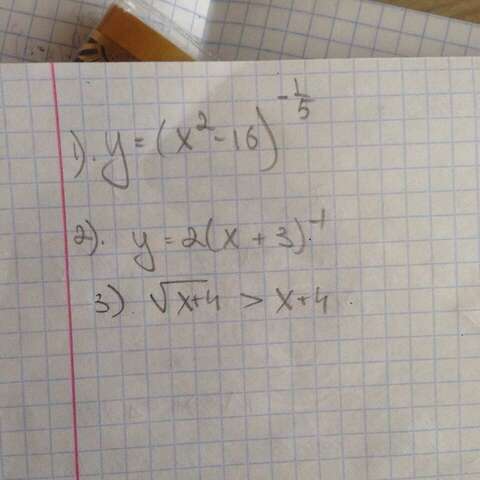 1). y = (x² - 16)^(-1/5)
2). y = 2(x + 3)⁻¹
3) √x+4 > x+4.